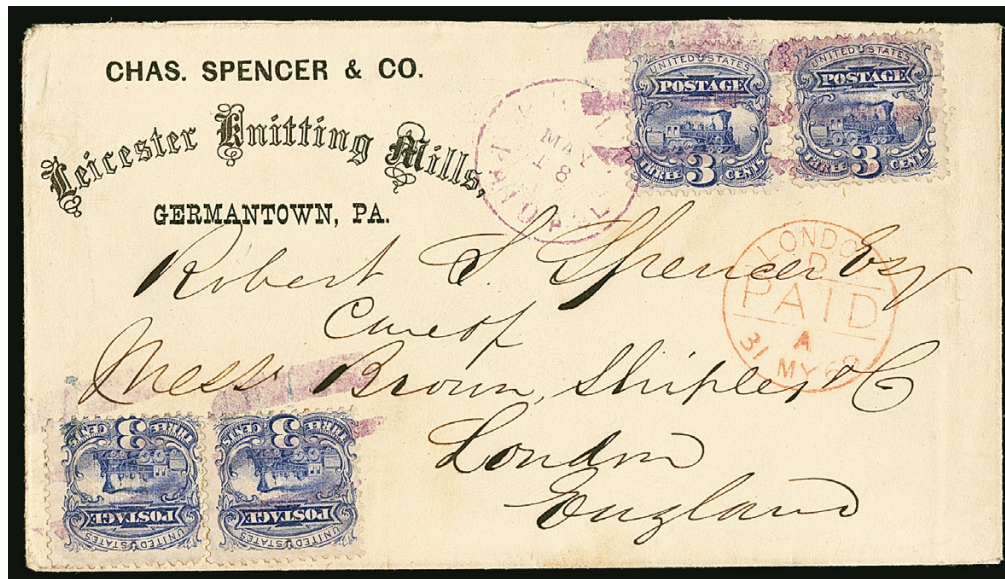 CHAS. SPENCER & CO.
Leicester Knitting Mills,
GERMANTOWN, PA.
MAY
18
UNITED STATES
POSTAGE
THREE 3 CENTS
UNITED STATES
POSTAGE
THREE 3 CENTS
LONDON
D
PAID
A
31 MY 69
Robert S. Spencer Esq
Care of
Messrs Brown, Shipley & Co
London
England
THREE 3 CENTS
POSTAGE
UNITED STATES
THREE 3 CENTS
POSTAGE
UNITED STATES